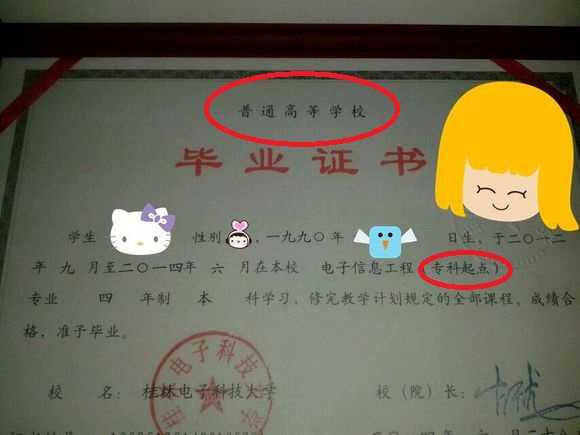 普通高等学校
毕业证书
学生 性别 ，一九九〇年 日生，于二〇一二
年 九 月至二〇一四年 六 月在本校 电子信息工程（专科起点）
专业 四 年制 本 科学习，修完教学计划规定的全部课程，成绩合
格，准予毕业。
校 名： 桂林电子科技大学 校（院）长：